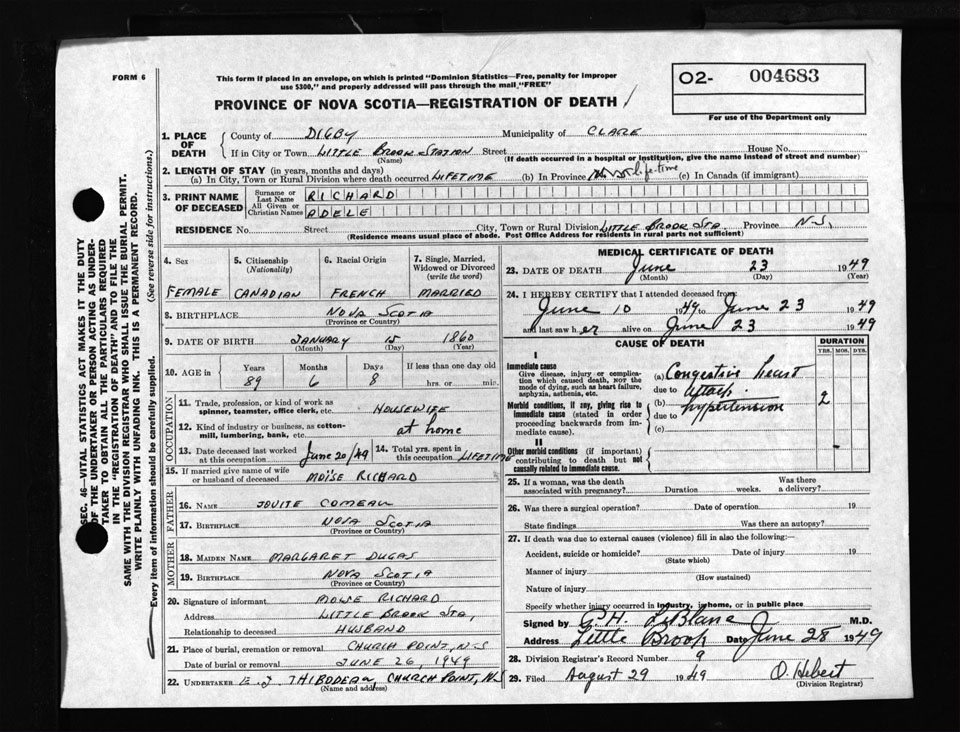 FORM 6
This form if placed in an envelope, on which is printed "Dominion Statistics—Free, penalty for improper
use $300," and properly addressed will pass through the mail "FREE"
PROVINCE OF NOVA SCOTIA—REGISTRATION OF DEATH
O2- 004683
For use of the Department only
SEC. 46—VITAL STATISTICS ACT MAKES IT THE DUTY
OF THE UNDERTAKER OR PERSON ACTING AS UNDER-
TAKER TO OBTAIN ALL THE PARTICULARS REQUIRED
IN THE "REGISTRATION OF DEATH" AND TO FILE THE
SAME WITH THE DIVISION REGISTRAR WHO SHALL ISSUE THE BURIAL PERMIT.
WRITE PLAINLY WITH UNFADING INK. THIS IS A PERMANENT RECORD.
Every item of information should be carefully supplied. (See reverse side for instructions.)
1. PLACE OF DEATH County of DIGBY Municipality of CLARE
If in City or Town LITTLE BROOK STATION Street House No.
(Name) (If death occurred in a hospital or institution, give the name instead of street and number)
2. LENGTH OF STAY (in years, months and days)
(a) In City, Town or Rural Division where death occurred LIFETIME (b) In Province life-time (c) In Canada (if immigrant)
3. PRINT NAME OF DECEASED Surname or Last Name RICHARD
All Given or Christian Names ADELE
RESIDENCE No. Street City, Town or Rural Division LITTLE BROOK STA, Province N-S,
(Residence means usual place of abode. Post Office Address for residents in rural parts not sufficient)
4. Sex 5. Citizenship (Nationality) 6. Racial Origin 7. Single, Married, Widowed or Divorced (write the word)
FEMALE CANADIAN FRENCH MARRIED
8. BIRTHPLACE NOVA SCOTIA
(Province or Country)
9. DATE OF BIRTH JANUARY 15 1860
(Month) (Day) (Year)
10. AGE in Years Months Days If less than one day old
89 6 8 hrs. or min.
OCCUPATION
11. Trade, profession, or kind of work as
spinner, teamster, office clerk, etc. HOUSEWIFE
12. Kind of industry or business, as cotton-
mill, lumbering, bank, etc. at home
13. Date deceased last worked at this occupation June 20/49 14. Total yrs. spent in this occupation LIFETIME
15. If married give name of wife
or husband of deceased MOÏSE RICHARD
FATHER
16. NAME JOVITE COMEAU
17. BIRTHPLACE NOVA SCOTIA
(Province or Country)
MOTHER
18. MAIDEN NAME MARGARET DUGAS
19. BIRTHPLACE NOVA SCOTIA
(Province or Country)
20. Signature of informant MOISE RICHARD
Address LITTLE BROOK STA,
Relationship to deceased HUSBAND
21. Place of burial, cremation or removal CHURCH POINT, N-S
Date of burial or removal JUNE 26, 1949
22. UNDERTAKER E J THIBODEAU, CHURCH POINT, N-S
(Name and address)
MEDICAL CERTIFICATE OF DEATH
23. DATE OF DEATH June 23 1949
(Month) (Day) (Year)
24. I HEREBY CERTIFY that I attended deceased from:
June 10 1949 to June 23 1949
and last saw her alive on June 23 1949
CAUSE OF DEATH DURATION
YRS. MOS. DYS.
I
Immediate cause
Give disease, injury or complica-
tion which caused death, not the
mode of dying, such as heart failure,
asphyxia, asthenia, etc.
(a) Congestive heart
due to attack
Morbid conditions, if any, giving rise to
immediate cause (stated in order
proceeding backwards from im-
mediate cause).
(b) hypertension 2
due to
(c)
II
Other morbid conditions (if important)
contributing to death but not
causally related to immediate cause.
25. If a woman, was the death
associated with pregnancy? Duration weeks. Was there a delivery?
26. Was there a surgical operation? Date of operation 19
State findings Was there an autopsy?
27. If death was due to external causes (violence) fill in also the following:—
Accident, suicide or homicide? Date of injury 19
(State which)
Manner of injury
(How sustained)
Nature of injury
Specify whether injury occurred in industry, in home, or in public place
Signed by P.H. LeBlanc M.D.
Address Little Brook Date June 28 1949
28. Division Registrar's Record Number 9
29. Filed August 29 1949 O. Hebert
(Division Registrar)